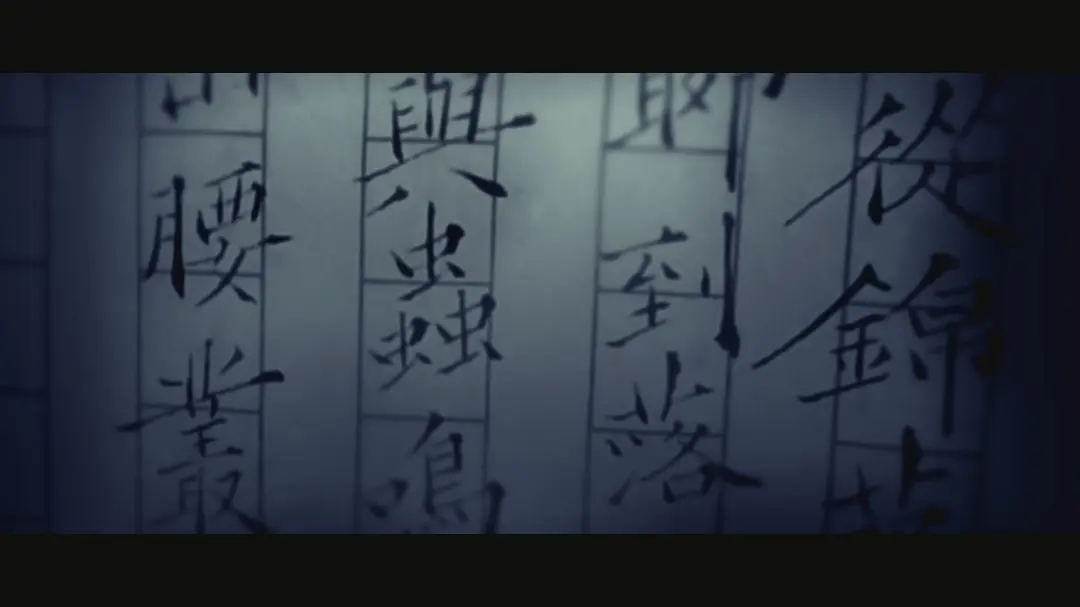 從錦
到落
與蟲鳴
腰叢